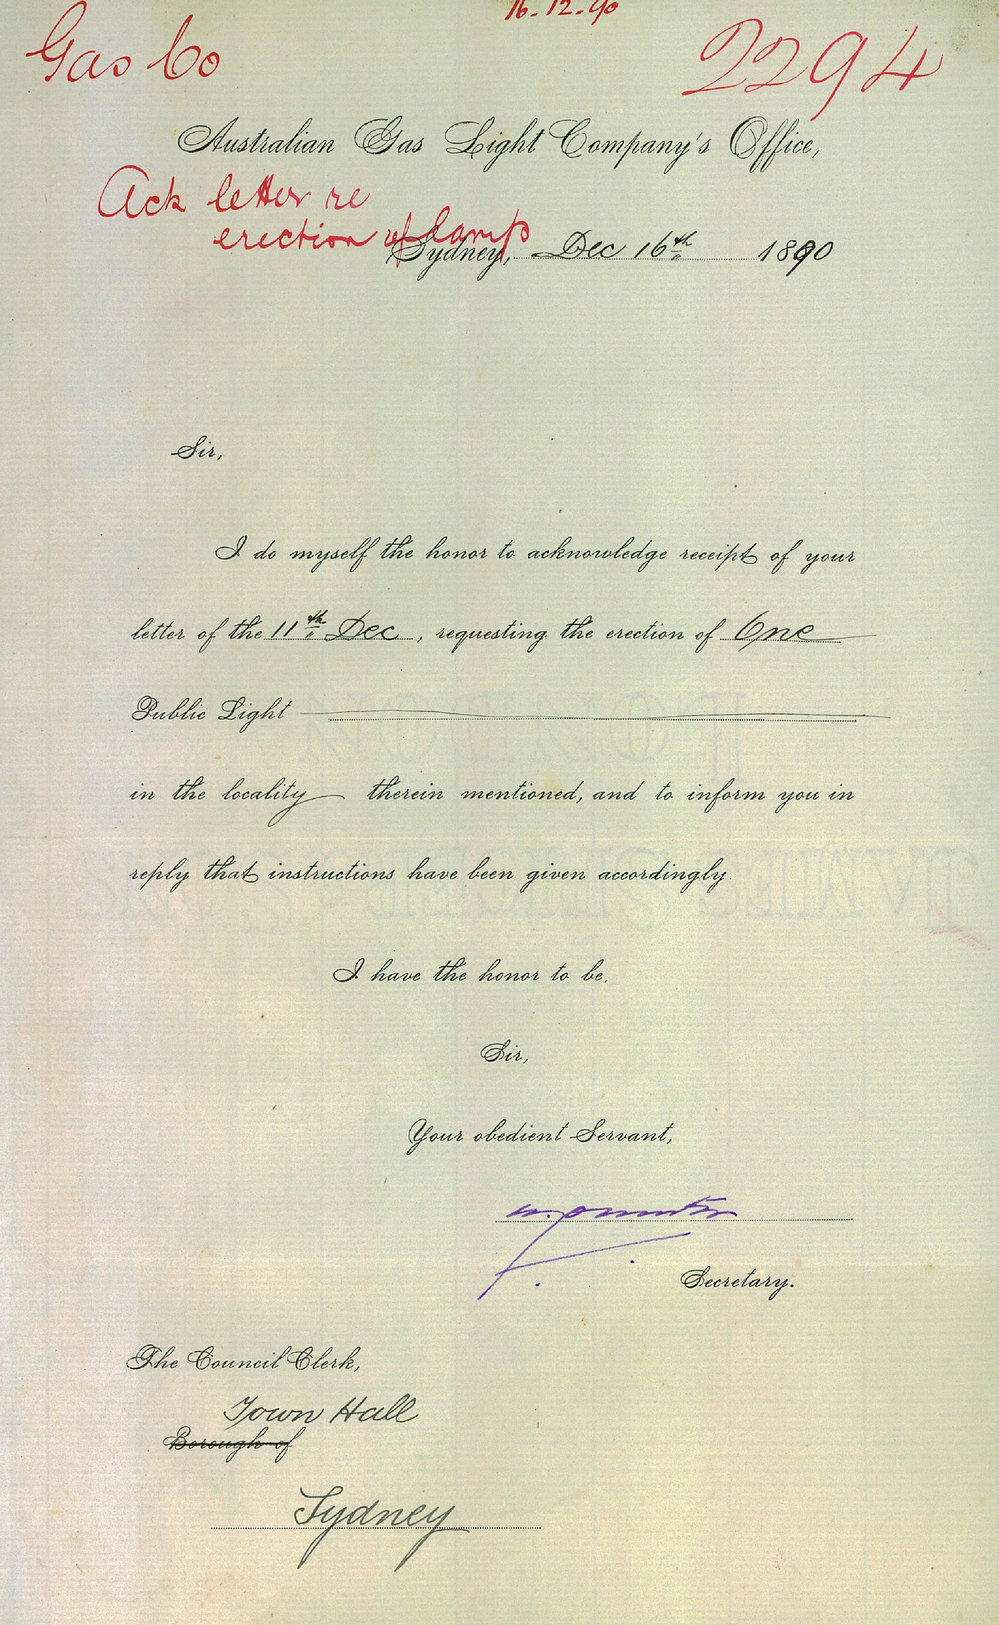 16-12-90
Gas Co
2294
Australian Gas Light Company's Office,
Ack letter re
erection of lamp
Sydney, Dec 16th 1890
Sir,
I do myself the honor to acknowledge receipt of your
letter of the 11th Dec, requesting the erection of One
Public Light
in the locality therein mentioned, and to inform you in
reply that instructions have been given accordingly.
I have the honor to be,
Sir,
Your obedient Servant,
Secretary.
The Council Clerk,
Town Hall
Borough of
Sydney